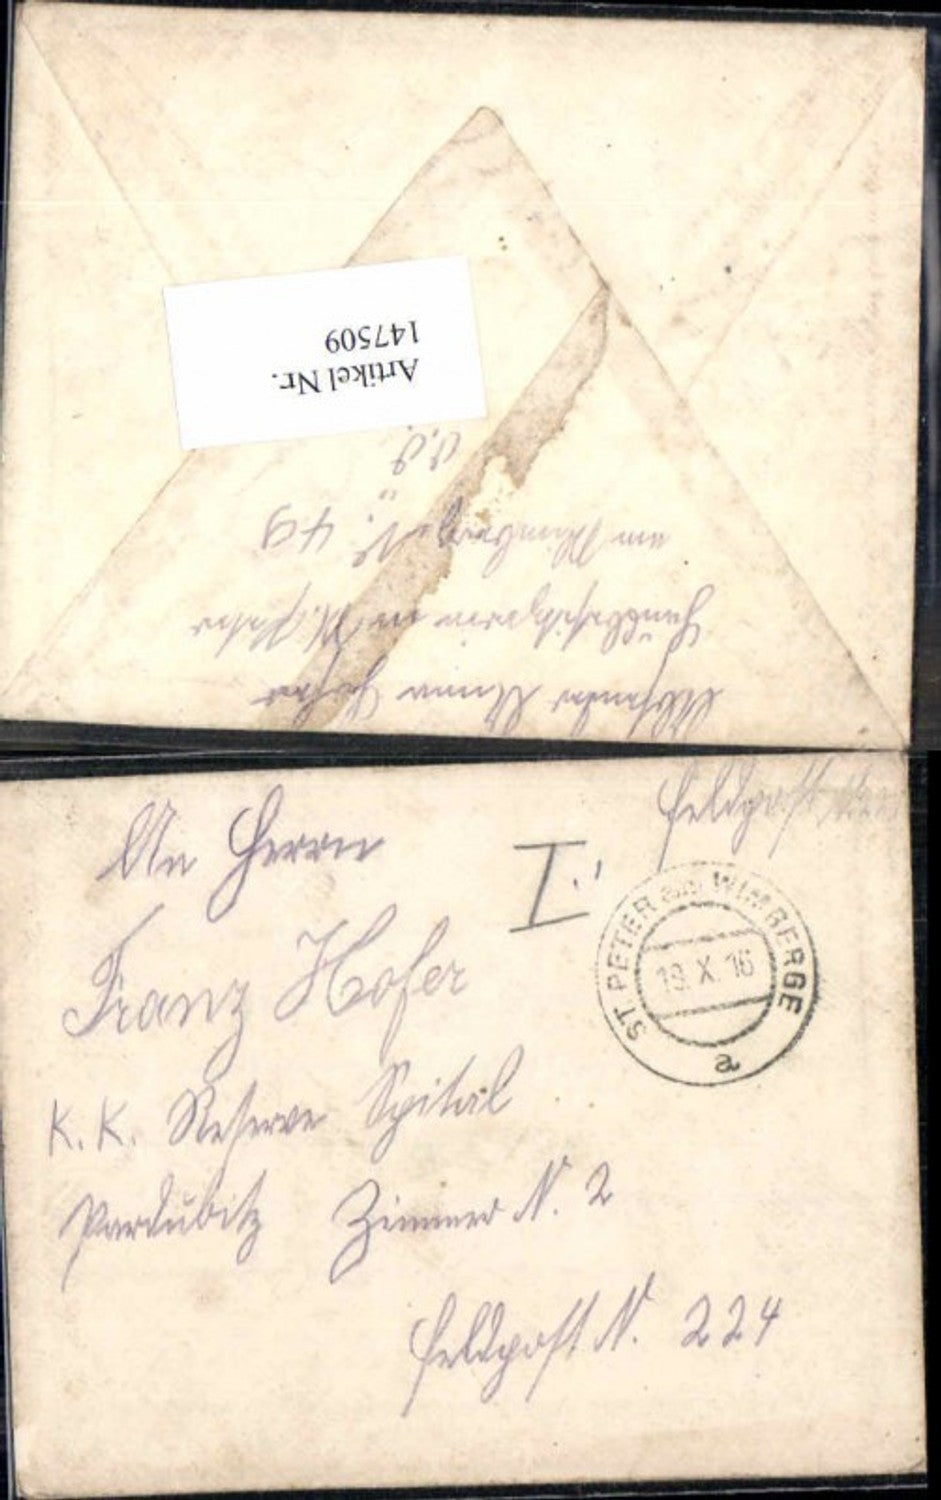 Artikel Nr.
147509
Absender Anna Hofer
Hausbesitzerin in St. Peter
am Wimberg N. 49
O.Ö.
Feldpost
An Herrn
I.
Franz Hofer
ST. PETER am WIMBERGE
19. X. 16
a
K. K. Reserve Spital
Pardubitz Zimmer N. 2
Feldpost N. 224